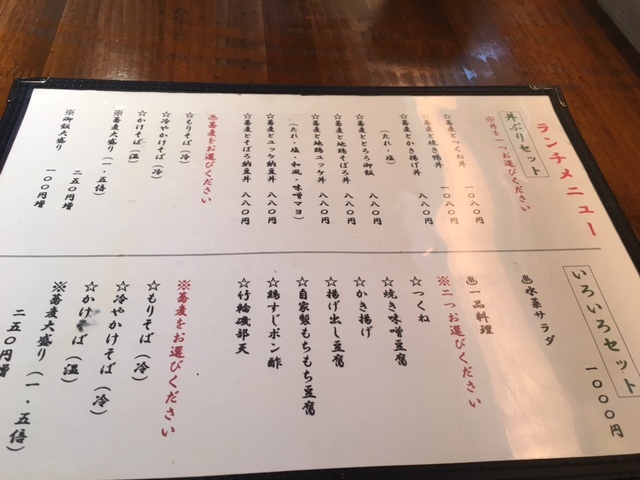 ランチメニュー
丼ぶりセット
※丼を一つお選びください
☆蕎麦とつくね丼 一〇八〇円
☆蕎麦と焼き鴨丼 一〇八〇円
(たれ・塩)
☆蕎麦とかき揚げ丼 八八〇円
☆蕎麦ととろろ御飯 八八〇円
☆蕎麦と地鶏そぼろ丼 八八〇円
☆蕎麦と地鶏ユッケ丼 八八〇円
(たれ・塩・和風・味噌マヨ)
☆蕎麦とユッケ納豆丼 八八〇円
☆蕎麦とそぼろ納豆丼 八八〇円
※蕎麦をお選びください
☆もりそば(冷)
☆冷やかけそば(冷)
☆かけそば(温)
※蕎麦大盛り(一・五倍) 二五〇円増
※御飯大盛り 一〇〇円増
いろいろセット 一〇〇〇円
水菜サラダ
一品料理
※二つお選びください
☆つくね
☆焼き味噌豆腐
☆かき揚げ
☆揚げ出し豆腐
☆自家製もちもち豆腐
☆鶏すじポン酢
☆竹輪磯部天
※蕎麦をお選びください
☆もりそば(冷)
☆冷やかけそば(冷)
☆かけそば(温)
※蕎麦大盛り(一・五倍)
二五〇円増